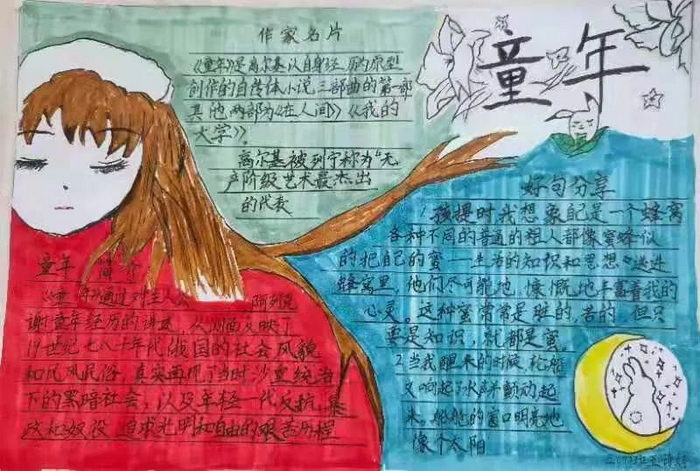 童年
作家名片
《童年》是高尔基以自身经历为原型
创作的自传体小说三部曲的第一部
其他两部为《在人间》《我的
大学》。
高尔基被列宁称为"无
产阶级艺术最杰出
的代表
童年 简介
《童年》通过对主人公 阿列克
谢童年经历的讲述,从侧面反映了
19世纪七八十年代俄国的社会风貌
和民风民俗,真实再现了当时沙皇统治
下的黑暗社会,以及年轻一代反抗暴
政和奴役 追求光明和自由的艰苦历程
好句分享
1.孩提时我想象自己是一个蜂窝
各种不同的普通的粗人都像蜜蜂似
的把自己的蜜——生活的知识和思想,送进
蜂窝里,他们尽可能地 慷慨地丰富着我的
心灵。这种蜜常常是脏的,苦的,但只
要是知识,就都是蜜
2.当我醒来的时候,轮船
又响起了水声颤动起
来,船舱的窗口明亮地
像个太阳